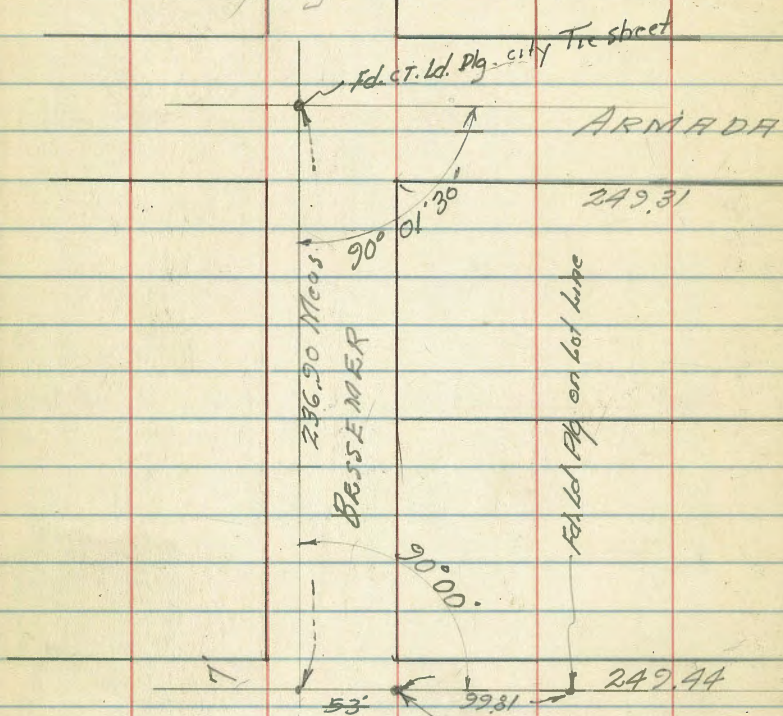 Fd. CT. Ld. Plg. city Tie sheet
ARMADA
249.31
90° 01' 30"
236.90 Meas.
BESSEMER
Fd. Ld Plg on Lot Line
90° 00'
7
53'
99.81
249.44